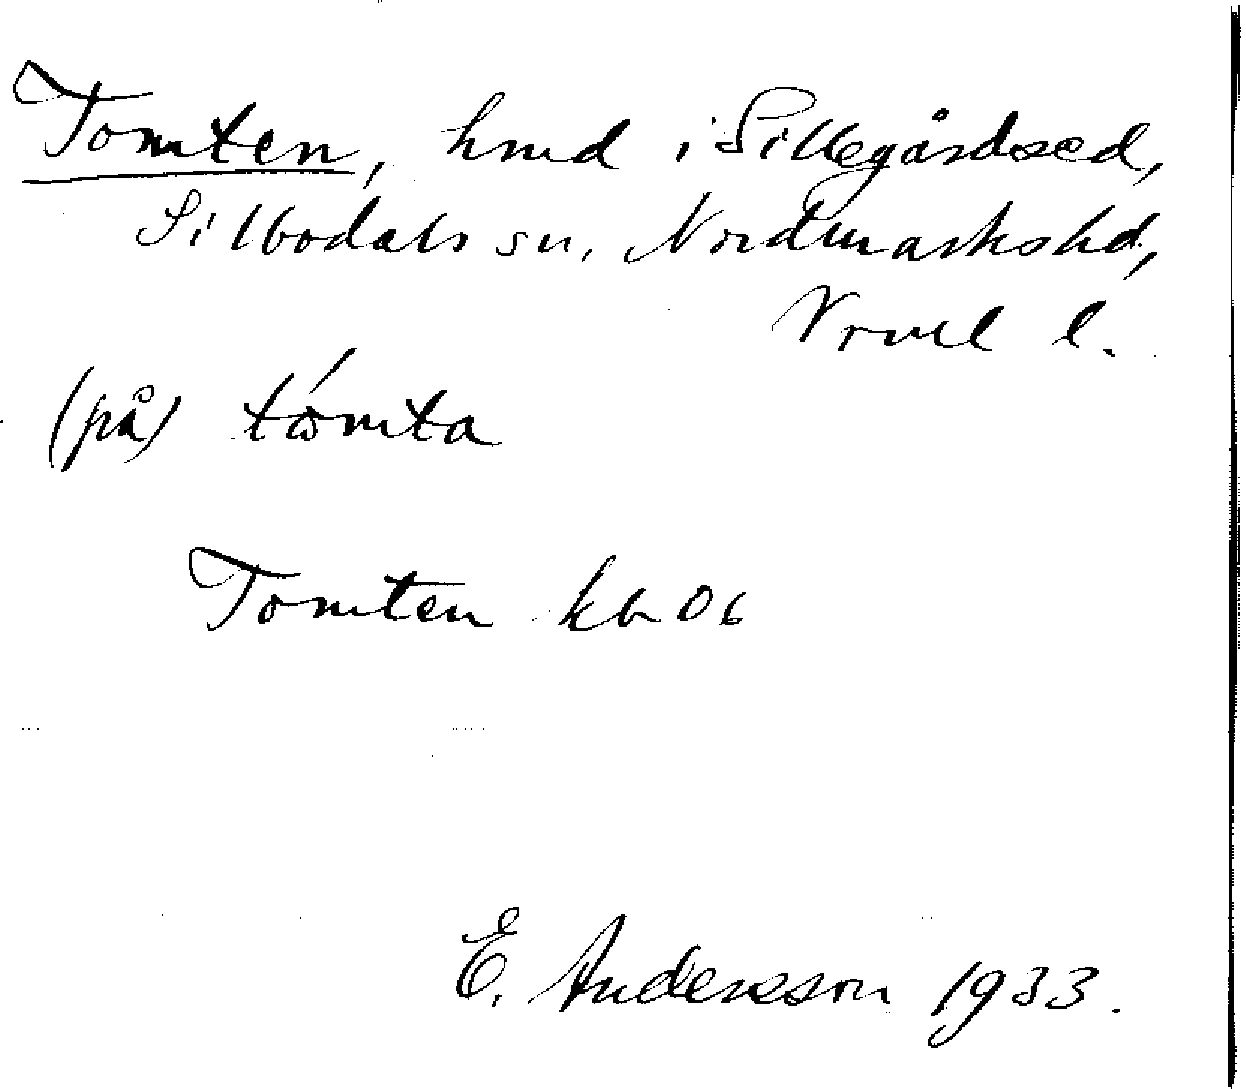 Tomten, hmd i Sillegårdsed,
Silbodals sn, Nordmarkshd,
Vrml l.
(på) tómta
Tomten kb 06
E. Andersson 1933.